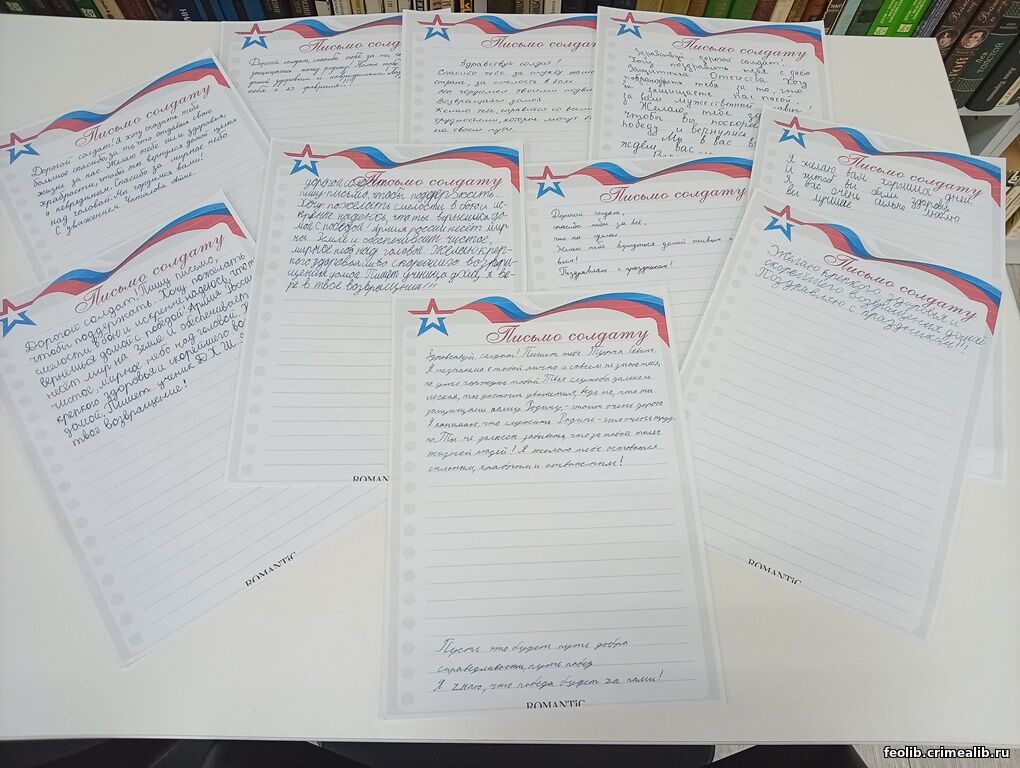 Письмо солдату
Дорогой солдат, спасибо тебе за то, что
защищаешь нашу родину! Желаю тебе
Письмо солдату
Здравствуй солдат!
Спасибо тебе за службу
стране, за смелость в бою.
Возвращайся домой
Желаю тебе, справится со всеми
трудностями, которые могут
на твоём пути.
Письмо солдату
Здравствуй дорогой солдат!
Хочу поздравить тебя с днём
Защитника Отечества. Хочу
поблагодарить тебя за то, что
ты защищаешь нас
Желаю тебе
чтобы вы поскорее
победу и вернулись
Мы в вас
ждём вас!!!
Письмо солдату
Дорогой солдат! Я хочу сказать тебе
большое спасибо, за то что отдаёшь свою
жизнь за нас. Желаю тебе сил, здоровья,
храбрости, чтобы ты вернулся домой целым
и невредимым. Спасибо за мирное небо
над головой. Мы гордимся вами!
С уважением,
Письмо солдату
Дорогой солдат
пишу письмо, чтобы поддержать
Хочу пожелать смелости в бою и ис-
кренне надеюсь, что ты вернёшься до-
мой с победой! Армия России несёт мир
на Земле и обеспечивает чистое,
мирное небо над головой. Желаю креп-
кого здоровья и скорейшего возвра-
щения домой. Пишет ученица ДХШ, я ве-
рю в твоё возвращение!!!
ROMANTIC
Письмо солдату
Дорогой солдат,
спасибо тебе за все,
что ты сделал
Желаю тебе вернуться домой живым и
Поздравляю с праздником!
Письмо солдату
Я желаю вам хороших дней
И чтобы вы были здоровы
Я вас очень сильно люблю
вы лучшие
Письмо солдату
Дорогой солдат! Пишу письмо,
чтобы поддержать. Хочу пожелать
смелости в бою и искренне надеюсь, что ты
вернёшься домой с победой! Армия России
несёт мир на Земле и обеспечивает
чистое, мирное небо над головой.
крепкого здоровья и скорейшего
домой. Пишет ученик ДХШ,
твоё возвращение!
ROMANTIC
Письмо солдату
Желаю крепкого здоровья и
скорейшего возвращения домой
Поздравляю с праздником!!!
ROMANTIC
Письмо солдату
Здравствуй, солдат! Пишет тебе
Я не знакома с тобой лично и совсем не знаю тебя,
но уже горжусь тобой. Твоя служба далеко не
легкая, ты достоин уважения, ведь то, что ты
защищаешь нашу Родину, - стоит очень дорого
Я понимаю, что служить Родине - это очень труд-
но. Ты не должен забывать, что за тобой тысяч
жизней людей! Я желаю тебе оставаться
сильным, храбрым и отважным!
Пусть это будет путь добра
справедливости, путь побед
Я знаю, что победа будет за нами!
ROMANTIC
feolib.crimealib.ru